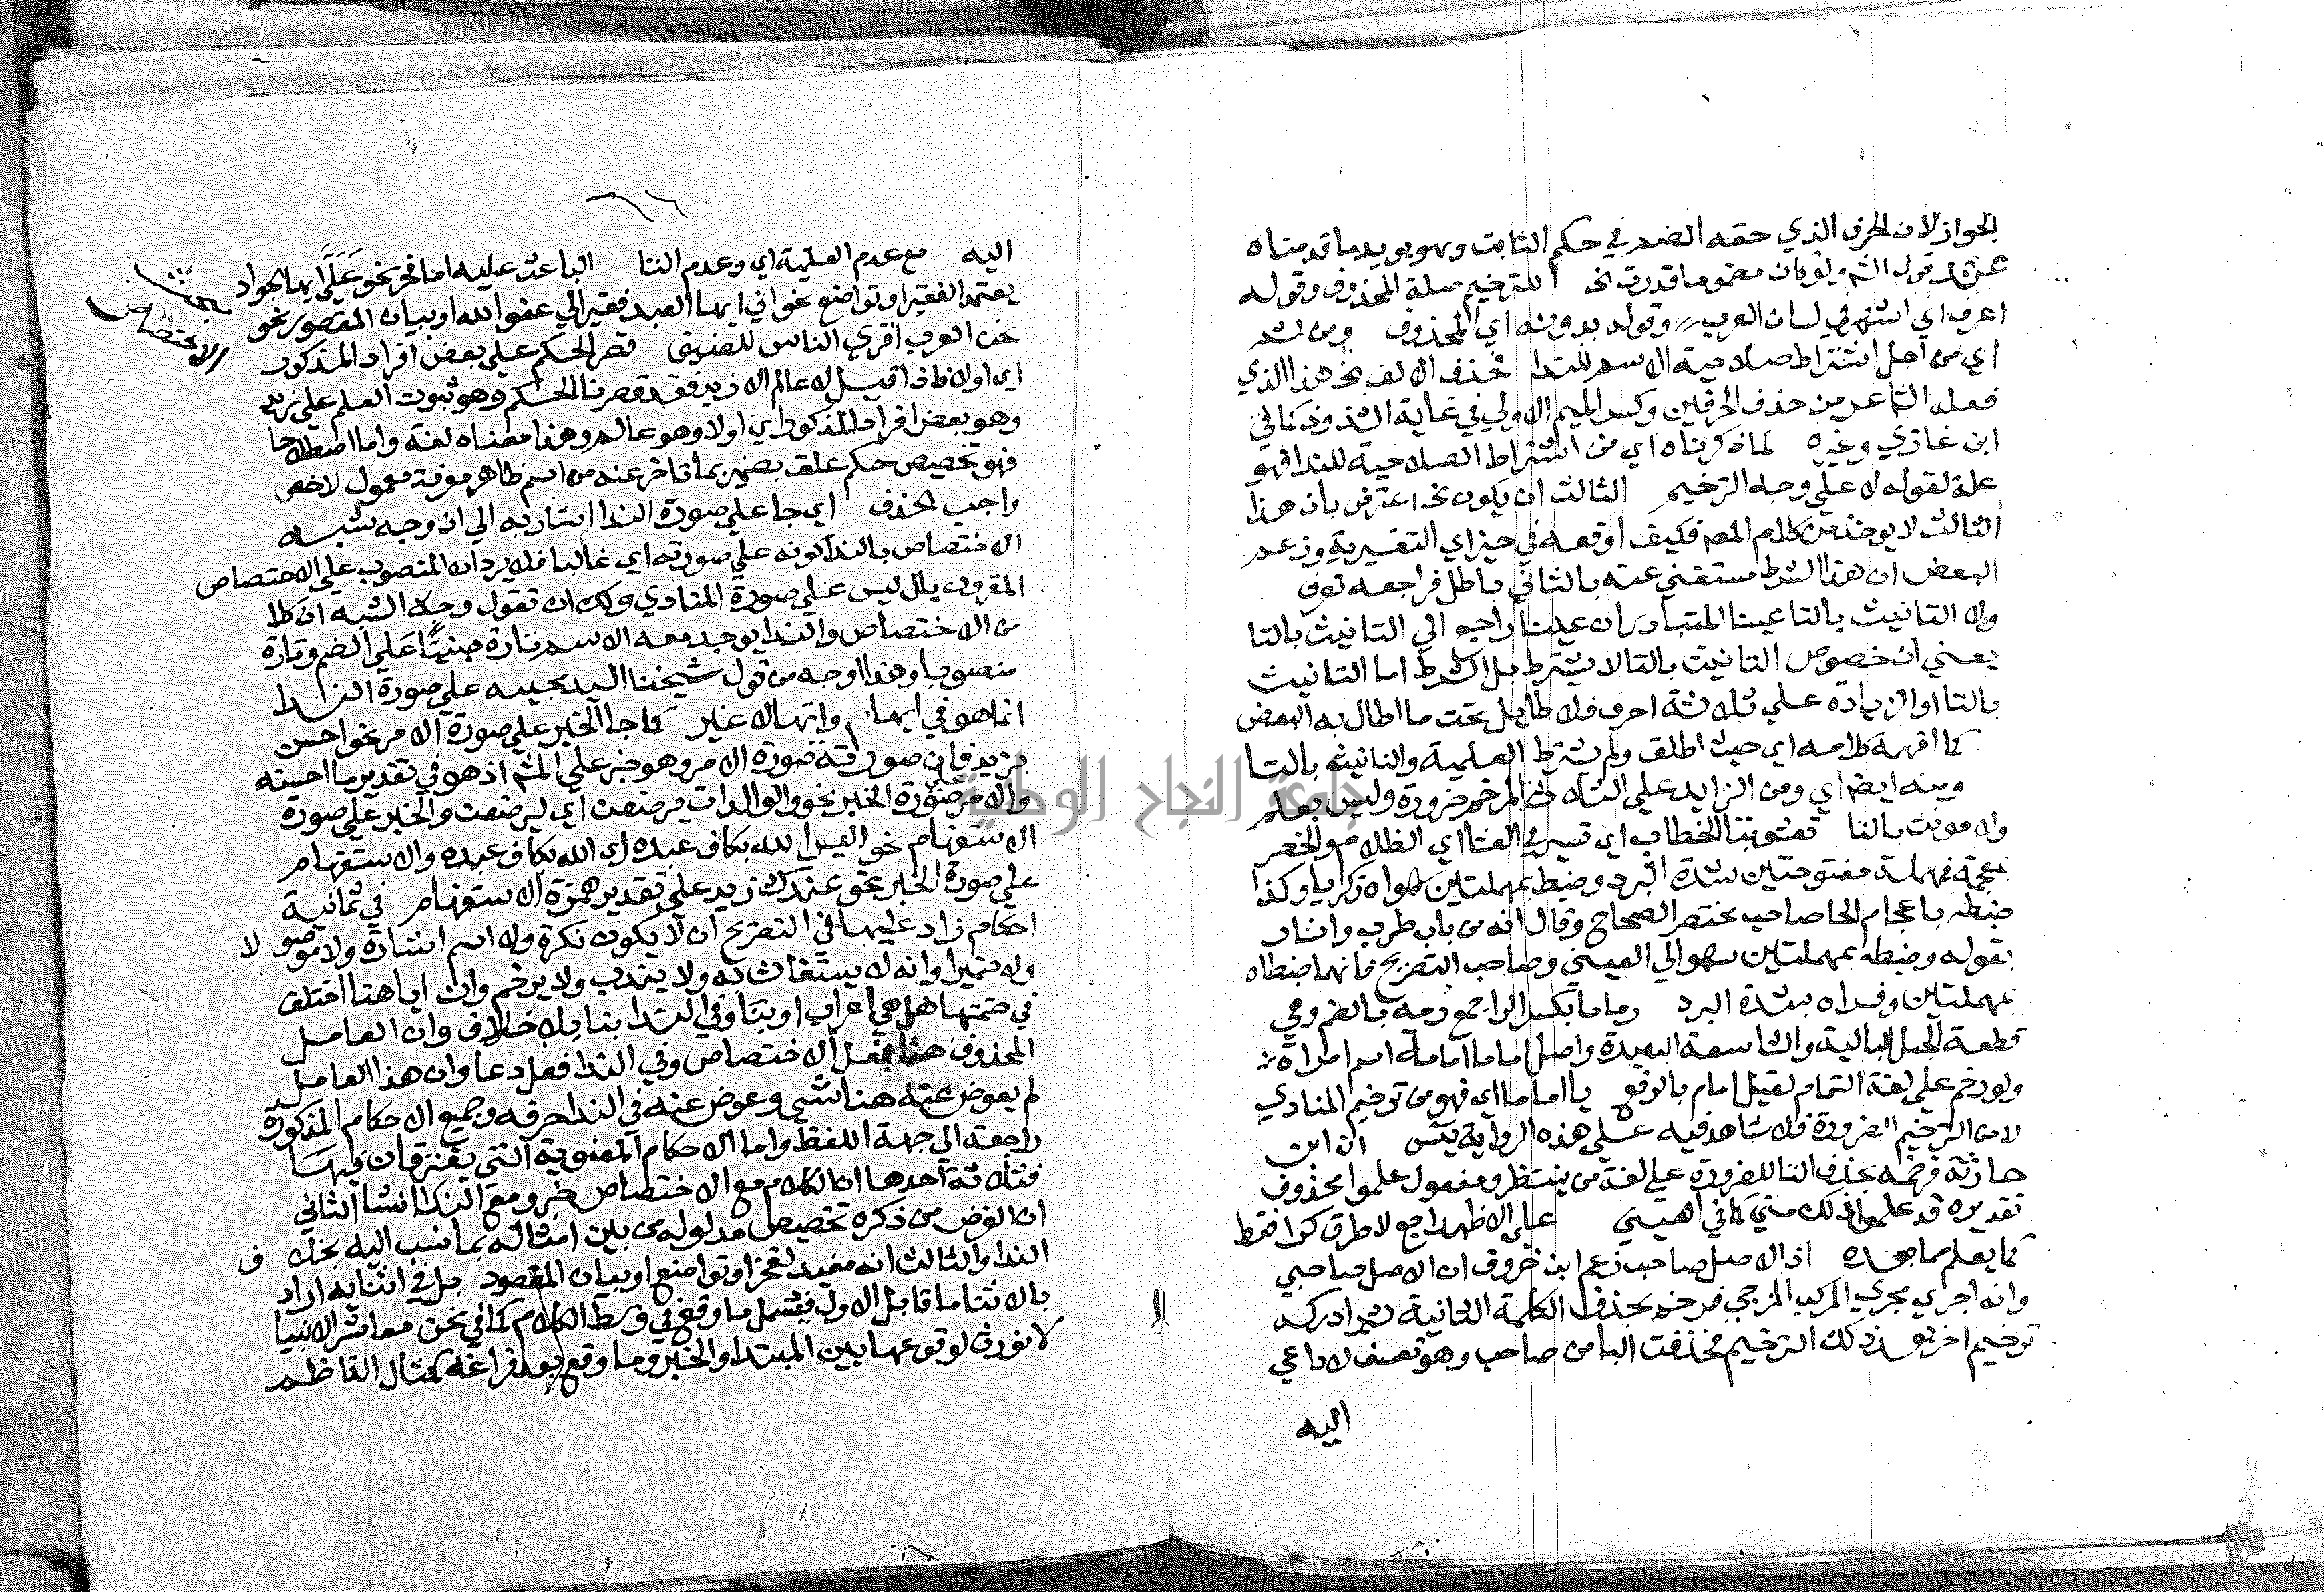 الجواز لان الحرف الذي حقه الضم في حكم الثابت وهو يويد ما قدمناه
قول الش ولو كان مضموما قدرت الخ للترخيم صلة المحذوف وقوله
اعرف اي اشتهر في لسان العرب وقوله بدونه اي المحذوف ومن ثم
اي من اجل اشتراط صلاحية الاسم للندا فحذف الالف الخ هذا الذي
فعله الشاعر من حذف الحرفين وكسر الميم الاولي في غاية الشذوذ كما في
ابن غازي وغيره لما ذكرناه اي من اشتراط الصلاحية للندا فهو
علة لقوله لا علي وجه الترخيم الثالث ان يكون الخ اعترض بان هذا
الثالث لا يوخذ من كلام المصم فكيف اوقعه في حيز اي التفسيرية وزعم
البعض ان هذا الشرط مستغني عنه بالثاني باطل فراجعه توف
ولا التانيث بالتا عينا المتبادر ان عينا راجع الي التانيث بالتا
يعني ان خصوص التانيث بالتا لا يشترط بل الشرط اما التانيث
بالتا او الزيادة علي ثلاثة احرف فلا طايل تحت ما اطال به البعض
كما افهمه كلامه اي حيث اطلق ولم يشترط العلمية والتانيث بالتا
ومنه ايضم اي ومن الزايد علي الثلاثة المرخم ضرورة وليس بعلم
ولا مونث بالتا تعشو بتا الخطاب اي تسير في العشا اي الظلام والخصر
بمعجمة فمهملة مفتوحتين شدة البرد وضبط بمهملتين كهواة زكريا وكذا
ضبطه باعجام الخا صاحب مختصر الصحاح وقال انه من باب طرب واشار
بقوله وضبطه بمهملتين سهو الي العيني وصاحب التصريح فانهما ضبطاه
بمهملتين وفسراه بشدة البرد رماما بكسر الرا جمع رمه بالضم وهي
قطعة الحبل البالية والشاسعة البعيدة واصل اماما امامة اسم امراة
ولو رخم علي لغة التمام لقيل امام بالرفع يا اماما اي فهو من ترخيم المنادي
لا من الترخيم الضرورة فلا شاهد فيه علي هذه الرواية يس ان ابن
حارثة فرخمه بحذف التا للضرورة علي لغة من ينتظر ومفعول علموا محذوف
تقديره قد علموا ذلك مني كما في العيني علي الاظهر راجع لا طرق كرا فقط
كما يعلم مما بعده اذ الاصل صاحب زعم ابن خروف ان الاصل صاحبي
وانه اجري مجري المركب المزجي فرخم بحذف الكلمة الثانية ثم ادركه
ترخيم اخر بعد ذلك الترخيم فحذفت البا من صاحب وهو تعسف لا داعي
اليه
اليه مع عدم العلمية اي وعدم التا الباعث عليه اما فخر نحو عَلَيَّ ايها الجواد
يعتمد الفقير او تواضع نحو اني ايها العبد فقير الي عفو الله او بيان المقصور نحو
نحن العرب اقري الناس للضيف قصر الحكم علي بعض افراد المذكور
اي اولا فاذا قيل لا عالم الا زيد فقد قصرنا الحكم وهو ثبوت العلم علي زيد
وهو بعض افراد المذكور اي اولا وهو عالم وهذا معناه لغة واما اصطلاحا
فهو تخصيص حكم علق بضمير بما تاخر عنه من اسم ظاهر معرفة معمول لاخص
واجب الحذف اي جا علي صورة الندا اشار به الي ان وجه شبه
الاختصاص بالندا كونه علي صورته اي غالبا فلا يرد ان المنصوب علي الاختصاص
المقرون بال ليس علي صورة المنادي ولك ان تقول وجه الشبه ان كلا
من الاختصاص والندا يوجد معه الاسم تارة مبنيًّا علي الضم وتارة
منصوبا وهذا اوجه من قول شيخنا السيد مجييه علي صورة الندا
انما هو في ايها وايتها لا غير كما جا الخبر علي صورة الامر نحو احسن
بزيد فان صورته صورة الامر وهو خبر علي المش اذ هو في تقدير ما احسنه
والامر علي صورة الخبر نحو والوالدات يرضعن اي ليرضعن والخبر علي صورة
الاستفهام نحو اليس الله بكاف عبده اي الله بكاف عبده والاستفهام
علي صورة الخبر نحو عندك زيد علي تقدير همزة الاستفهام في ثمانية
احكام زاد عليها في التصريح ان لا يكون نكرة ولا اسم اشارة ولا موصو لا
ولا ضميرا وانه لا يستغاث به ولا يندب ولا يرخم وان ايا هنا اختلف
في ضمتها هل هي اعراب او بنا وفي الندا بنا بلا خلاف وان العامل
المحذوف هنا فعل الاختصاص وفي الندا فعل دعا وان هذا العامل
لم يعوض عنه هنا شي وعوض عنه في الندا حرفه وجميع الاحكام المذكورة
راجعة الي جهة اللفظ واما الاحكام المعنوية التي يفترقان فيها
فثلاثة احدها ان الكلام مع الاختصاص خبر ومع الندا انشا الثاني
ان الغرض من ذكره تخصيص مدلوله من بين امثاله بما نسب اليه بخلا ف
الندا والثالث انه مفيد لفخر او تواضع او بيان المقصود بل في اثنايه اراد
بالاثنا ما قابل الاول فيشمل ما وقع في وسط الكلام كما في نحن معاشر الانبيا
لا نورث لوقوعها بين المبتدا والخبر وما وقع بعد فراغه كمثال الناظم
الاختصاص
جامعة النجاح الوطنية